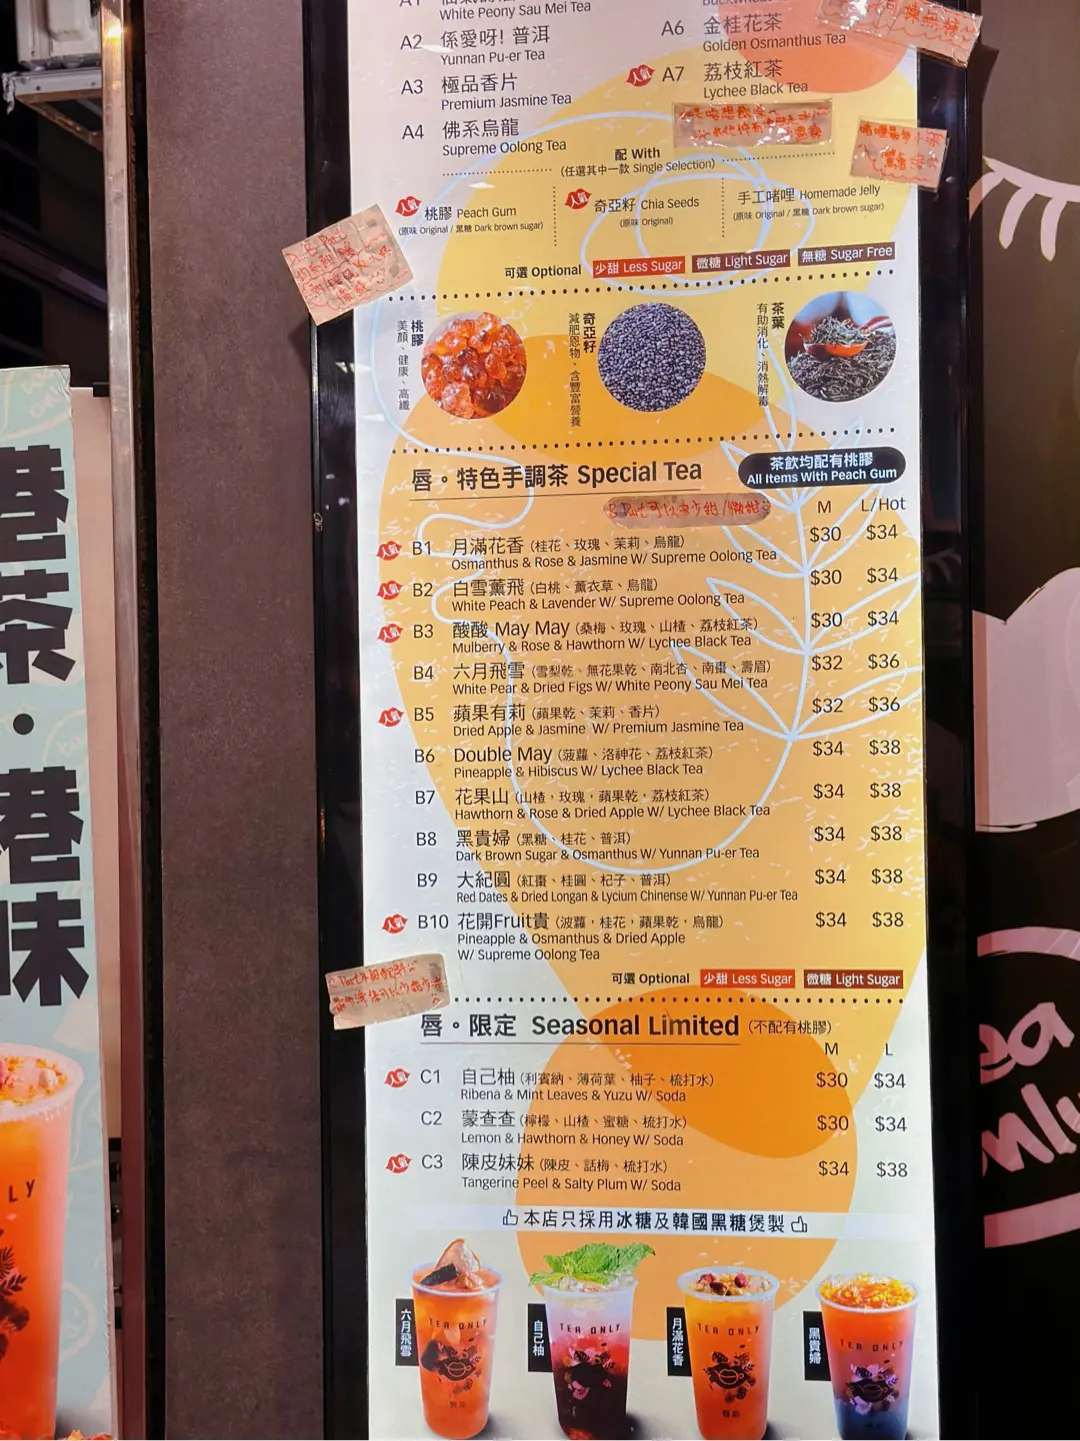 White Peony Sau Mei Tea
A2 係愛呀! 普洱
Yunnan Pu-er Tea
A3 極品香片
Premium Jasmine Tea
A4 佛系烏龍
Supreme Oolong Tea
A6 金桂花茶
Golden Osmanthus Tea
人氣 A7 荔枝紅茶
Lychee Black Tea
配 With
(任選其中一款 Single Selection)
人氣 桃膠 Peach Gum
(原味 Original / 黑糖 Dark brown sugar)
人氣 奇亞籽 Chia Seeds
(原味 Original)
手工啫哩 Homemade Jelly
(原味 Original / 黑糖 Dark brown sugar)
可選 Optional 少甜 Less Sugar 微糖 Light Sugar 無糖 Sugar Free
桃膠
美顏、健康、高纖
奇亞籽
減肥恩物、含豐富營養
茶葉
有助消化、消熱解毒
唇。特色手調茶 Special Tea
茶飲均配有桃膠
All Items With Peach Gum
B Part可以來少甜/微甜
M L/Hot
人氣 B1 月滿花香 (桂花、玫瑰、茉莉、烏龍) $30 $34
Osmanthus & Rose & Jasmine W/ Supreme Oolong Tea
人氣 B2 白雪薰飛 (白桃、薰衣草、烏龍) $30 $34
White Peach & Lavender W/ Supreme Oolong Tea
人氣 B3 酸酸 May May (桑梅、玫瑰、山楂、荔枝紅茶) $30 $34
Mulberry & Rose & Hawthorn W/ Lychee Black Tea
B4 六月飛雪 (雪梨乾、無花果乾、南北杏、南棗、壽眉) $32 $36
White Pear & Dried Figs W/ White Peony Sau Mei Tea
人氣 B5 蘋果有莉 (蘋果乾、茉莉、香片) $32 $36
Dried Apple & Jasmine W/ Premium Jasmine Tea
B6 Double May (菠蘿、洛神花、荔枝紅茶) $34 $38
Pineapple & Hibiscus W/ Lychee Black Tea
B7 花果山 (山楂，玫瑰，蘋果乾，荔枝紅茶) $34 $38
Hawthorn & Rose & Dried Apple W/ Lychee Black Tea
B8 黑貴婦 (黑糖、桂花、普洱) $34 $38
Dark Brown Sugar & Osmanthus W/ Yunnan Pu-er Tea
B9 大紀圓 (紅棗、桂圓、杞子、普洱) $34 $38
Red Dates & Dried Longan & Lycium Chinense W/ Yunnan Pu-er Tea
人氣 B10 花開Fruit貴 (波蘿，桂花，蘋果乾，烏龍) $34 $38
Pineapple & Osmanthus & Dried Apple
W/ Supreme Oolong Tea
可選 Optional 少甜 Less Sugar 微糖 Light Sugar
唇。限定 Seasonal Limited (不配有桃膠)
M L
人氣 C1 自己柚 (利賓納、薄荷葉、柚子、梳打水) $30 $34
Ribena & Mint Leaves & Yuzu W/ Soda
C2 蒙查查 (檸檬、山楂、蜜糖、梳打水) $30 $34
Lemon & Hawthorn & Honey W/ Soda
人氣 C3 陳皮妹妹 (陳皮、話梅、梳打水) $34 $38
Tangerine Peel & Salty Plum W/ Soda
本店只採用冰糖及韓國黑糖煲製
六月飛雪
TEA ONLY
自己柚
TEA ONLY
月滿花香
TEA ONLY
黑貴婦
TEA ONLY
港茶・港味
LY